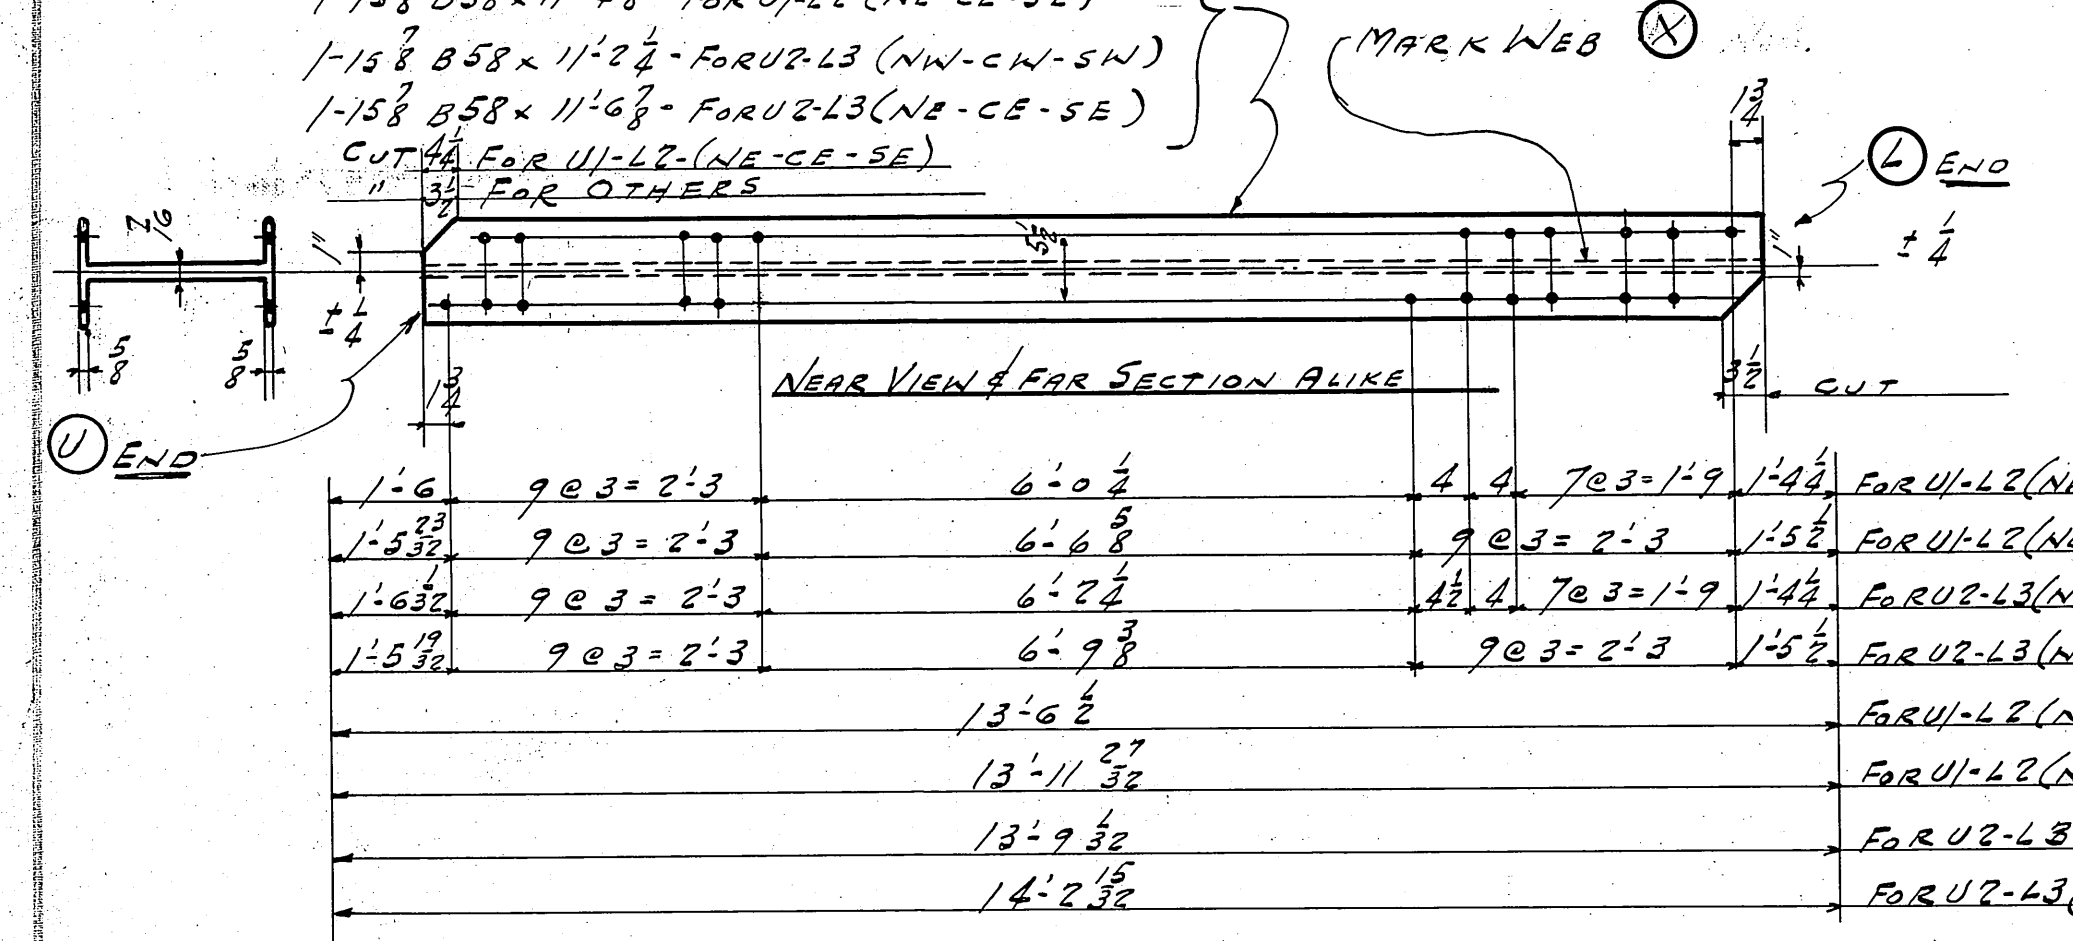 1-15 7/8 B58 x 11'-2 1/4 - FOR U2-L3 (NW-CW-SW)
1-15 7/8 B58 x 11'-6 7/8 - FOR U2-L3 (NE-CE-SE)
CUT 4 1/4 FOR U1-L2-(NE-CE-SE)
" 3 1/2 - FOR OTHERS
MARK WEB X
1 3/4
L END
± 1/4
1"
5 1/2
1"
± 1/4
5/8 5/8
1 3/4
U END
NEAR VIEW & FAR SECTION ALIKE
3 1/2 CUT
1'-6 9 @ 3 = 2'-3 6'-0 1/4 4 4 7 @ 3 = 1'-9 1'-4 1/4 FOR U1-L2 (
1'-5 23/32 9 @ 3 = 2'-3 6'-6 5/8 9 @ 3 = 2'-3 1'-5 1/2 FOR U1-L2 (
1'-6 1/32 9 @ 3 = 2'-3 6'-2 1/4 4 1/2 4 7 @ 3 = 1'-9 1'-4 1/4 FOR U2-L3 (
1'-5 19/32 9 @ 3 = 2'-3 6'-9 3/8 9 @ 3 = 2'-3 1'-5 1/2 FOR U2-L3 (
13'-6 1/2 FOR U1-L2 (
13'-11 27/32 FOR U1-L2 (
13'-9 1/32 FOR U2-L3
14'-2 15/32 FOR U2-L3 (